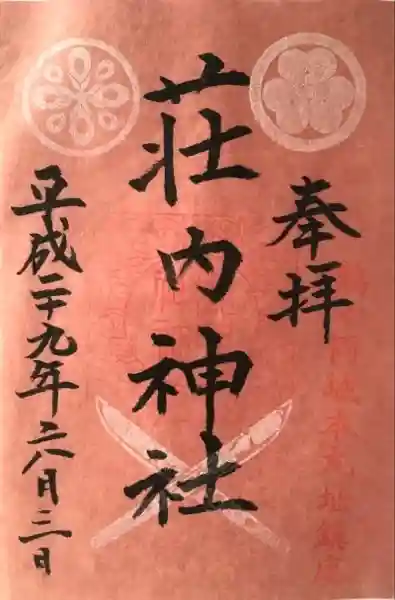 奉拝
荘内神社
平成二十九年六月三日